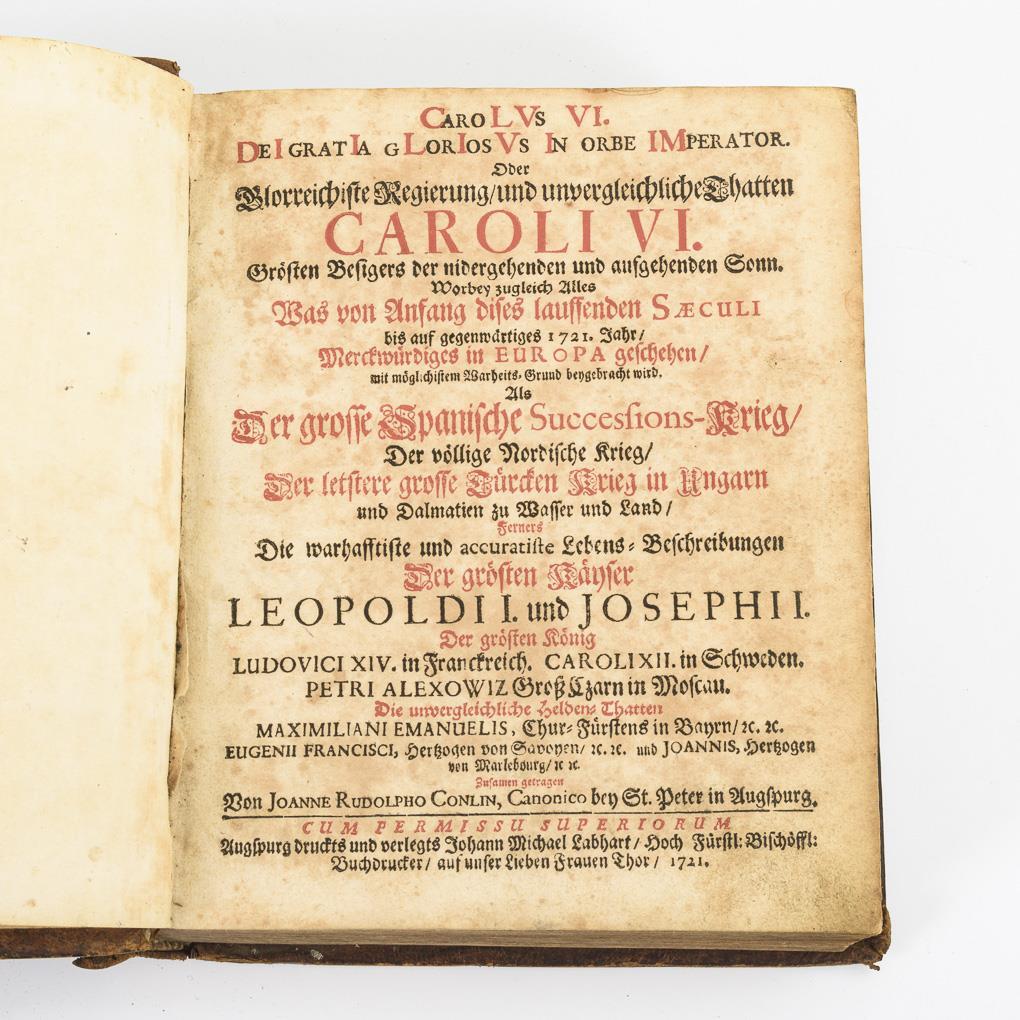 CAROLVS VI.
DEI GRATIA GLORIOSVS IN ORBE IMPERATOR.
Oder
Glorreichiste Regierung/und unvergleichliche Thatten
CAROLI VI.
Grösten Besitzers der nidergehenden und aufgehenden Sonn.
Worbey zugleich Alles
Was von Anfang dises lauffenden SÆCULI
bis auf gegenwärtiges 1721. Jahr/
Merckwürdiges in EUROPA geschehen/
mit möglichistem Warheits-Grund beygebracht wird.
Als
Der grosse Spanische Successions-Krieg/
Der völlige Nordische Krieg/
Der letstere grosse Türcken Krieg in Ungarn
und Dalmatien zu Wasser und Land/
Ferners
Die warhafftiste und accuratiste Lebens-Beschreibungen
Der grösten Käyser
LEOPOLDI I. und JOSEPHI I.
Der grösten König
LUDOVICI XIV. in Franckreich. CAROLI XII. in Schweden.
PETRI ALEXOWIZ Groß Czarn in Moscau.
Die unvergleichliche Helden-Thatten
MAXIMILIANI EMANUELIS, Chur-Fürstens in Bayrn/ ꝛc. ꝛc.
EUGENII FRANCISCI, Hertzogen von Savoyen/ ꝛc. ꝛc. und JOANNIS, Hertzogen
von Marlebourg/ ꝛc ꝛc.
Zusamen getragen
Von JOANNE RUDOLPHO CONLIN, Canonico bey St. Peter in Augspurg.
CUM PERMISSU SUPERIORUM
Augspurg druckts und verlegts Johann Michael Labhart/ Hoch Fürstl: Bischöffl:
Buchdrucker/ auf unser Lieben Frauen Thor/ 1721.